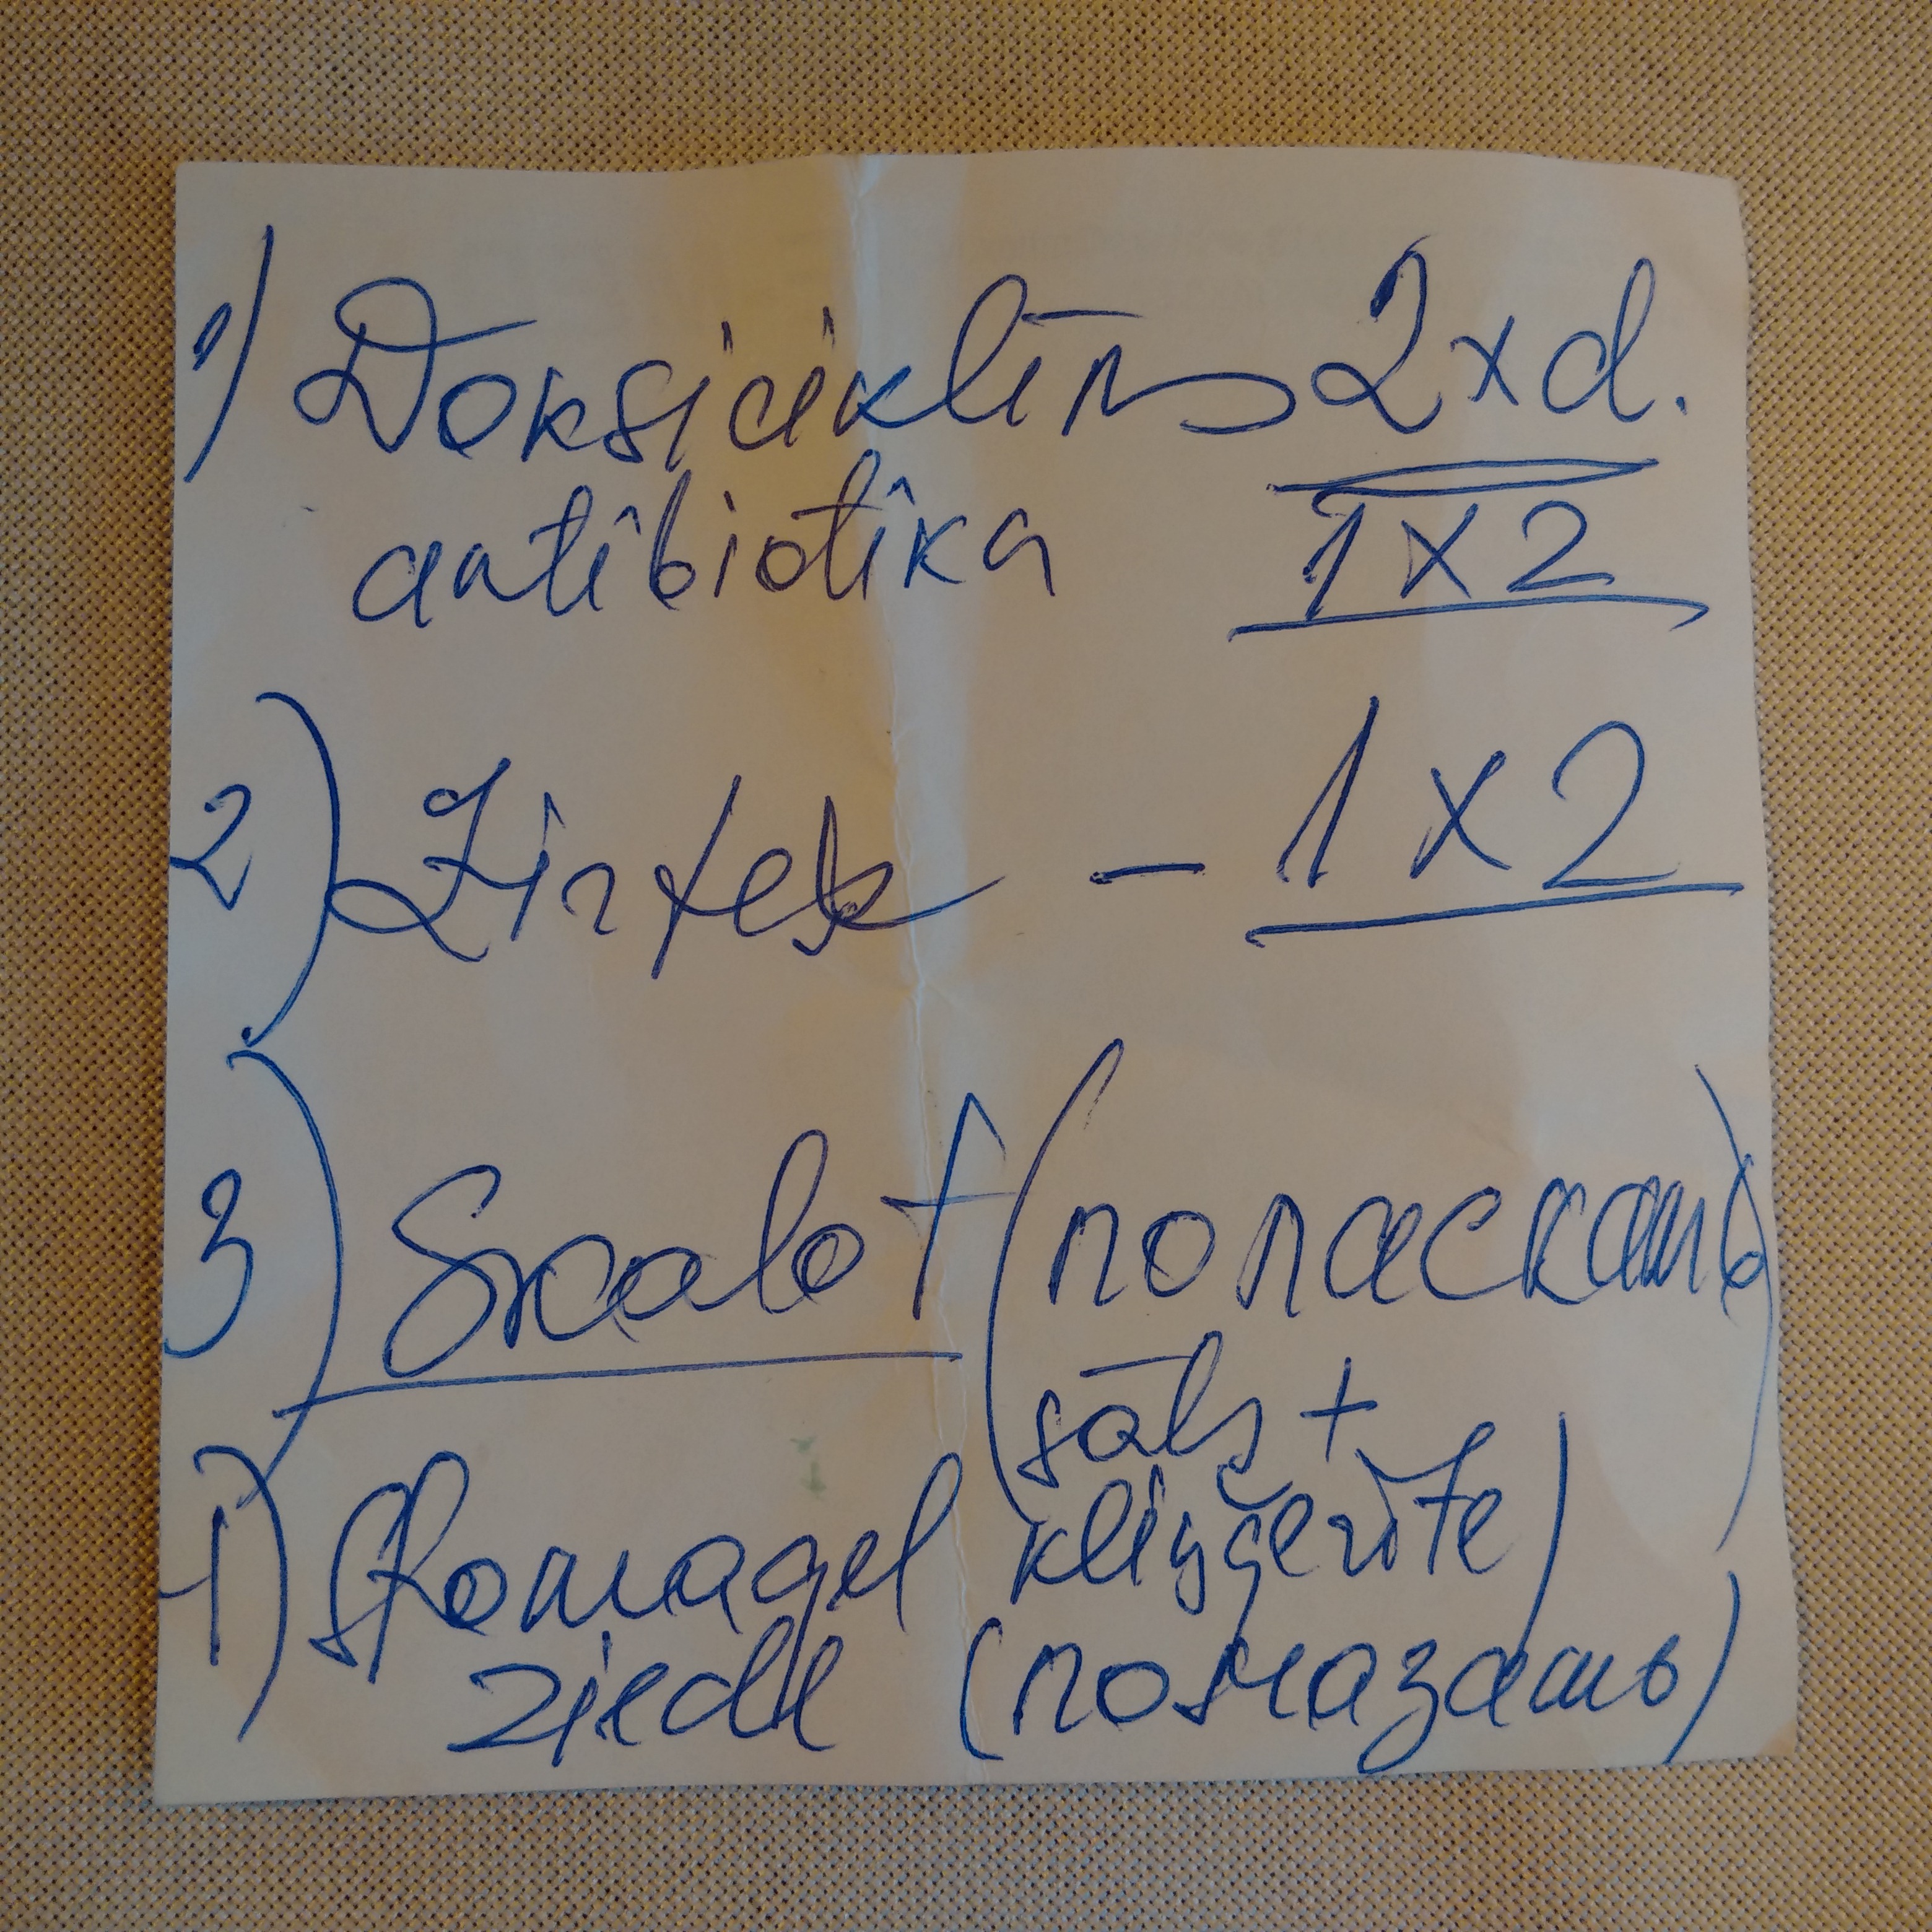 1) Doksiciklīns 2xd.
antibiotika 1x2
2) Zirtek - 1x2
3) Skalot (поласкать
sāls +
kliņģerīte)
4) Stomagel
ziede (помазать)